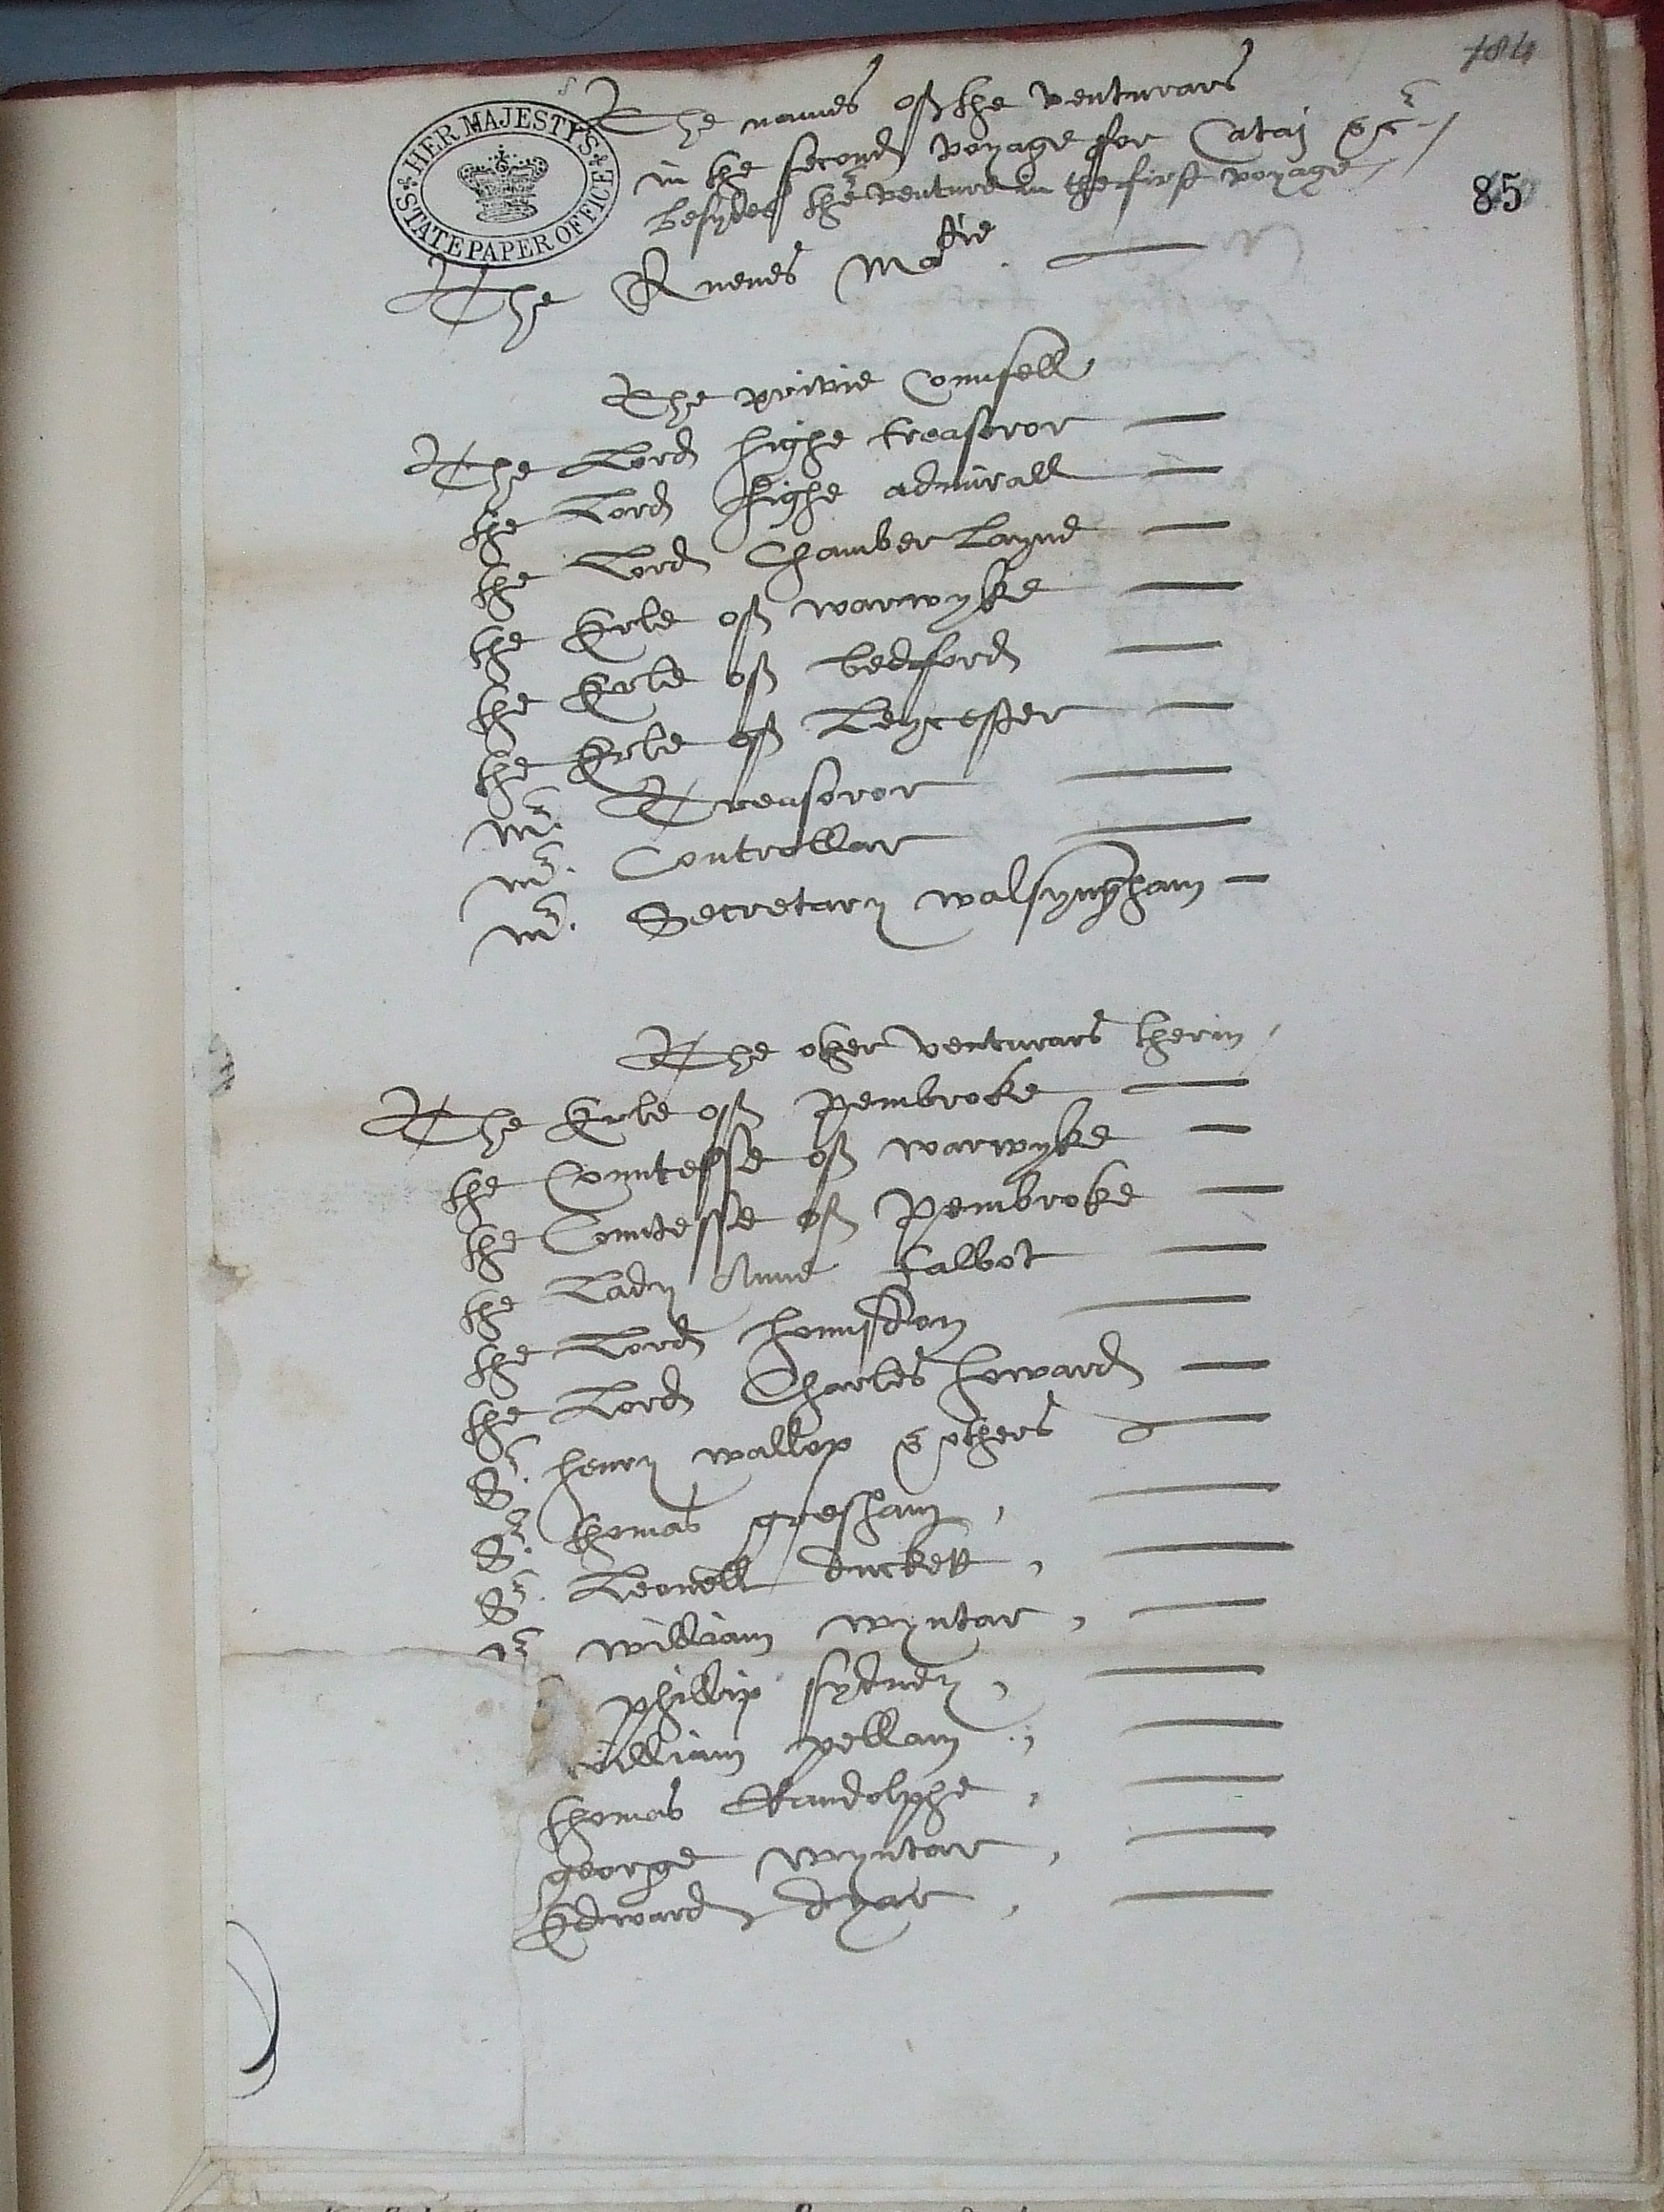 184
HER MAJESTY'S
STATE PAPER OFFICE
The names off the venturars
in the second voyage for Catai &c
besydes the venture in the first voyage
85
The Quenes Matie
The privie Counsell
The Lord highe treasoror
the Lord highe admirall
the Lord Chamberlayne
the Erle off warwyke
the Erle off bedfford
the Erle off Leycester
Mr. Treasoror
Mr. Controllar
Mr. Secretary walsyngham
The other venturars therin
The Erle off Pembroke
the Countesse off warwyke
the Countesse off Pembroke
the Lady Anne talbot
the Lord hounsdon
the Lord Charles howard
Sr. henry wallop & others
Sr. thomas gresham
Sr. Leonell duckett
Mr william wyntar
phillip sydney
william pellam
thomas Randolphe
george wyntar
Edward dyar